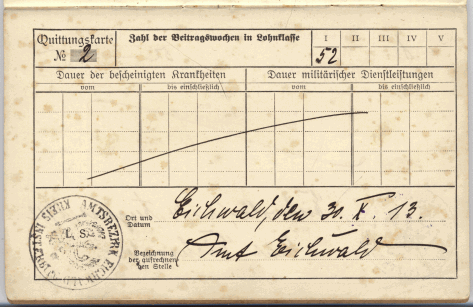 Quittungskarte
№ 2
Zahl der Beitragswochen in Lohnklasse
I II III IV V
52
Dauer der bescheinigten Krankheiten
Dauer militärischer Dienstleistungen
vom bis einschließlich vom bis einschließlich
Ort und
Datum
Eichwald, den 30. X. 13.
Bezeichnung
der aufrechnen-
den Stelle
Amt Eichwald
AMTSBEZIRK EICHWALD
KREIS